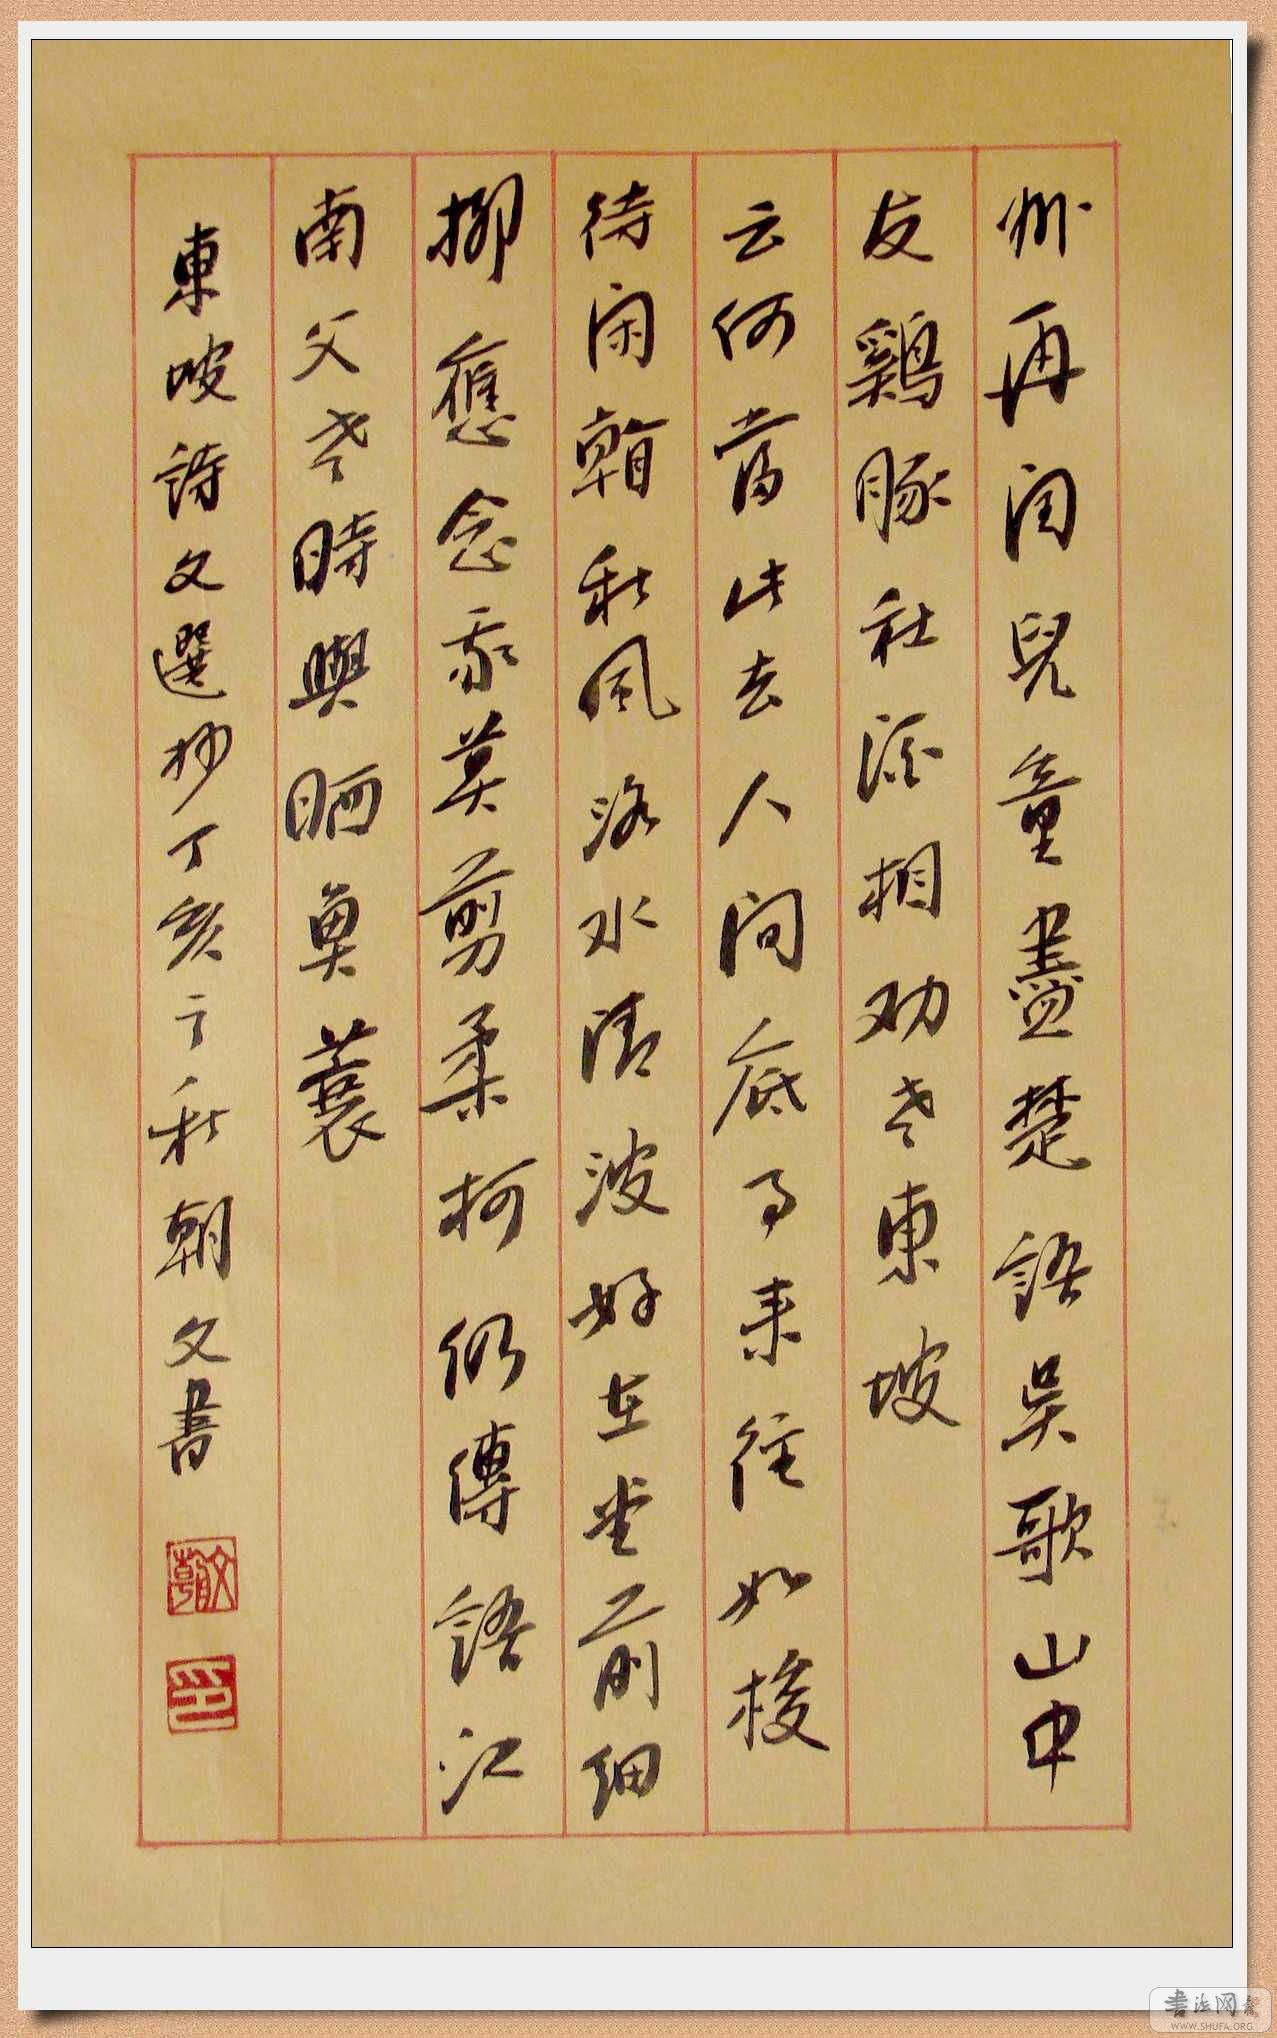 州再闰兒童盡楚語吴歌山中
友鷄豚社酒相劝老東坡
云何當此去人间底事来往如梭
待闲看秋风洛水清波好在堂前细
柳應念我莫剪柔柯仍傳語江
南父老時與晒魚蓑
東坡詩文選抄丁亥于秋朝文書
印
书法网
WWW.SHUFA.ORG